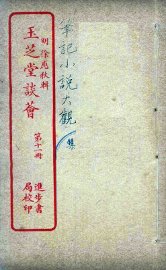 筆記小說大觀
明徐應秋輯
玉芝堂談薈
第十一冊
進步書
局校印